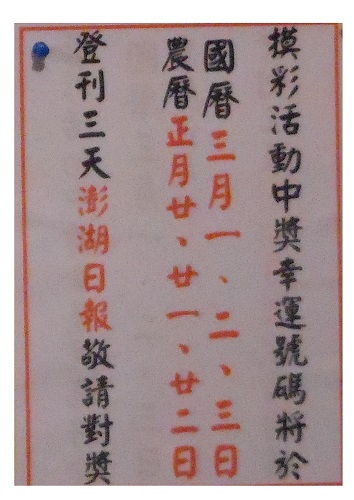 摸彩活動中獎幸運號碼將於
國曆三月一、二、三日
農曆正月廿、廿一、廿二日
登刊三天澎湖日報敬請對獎